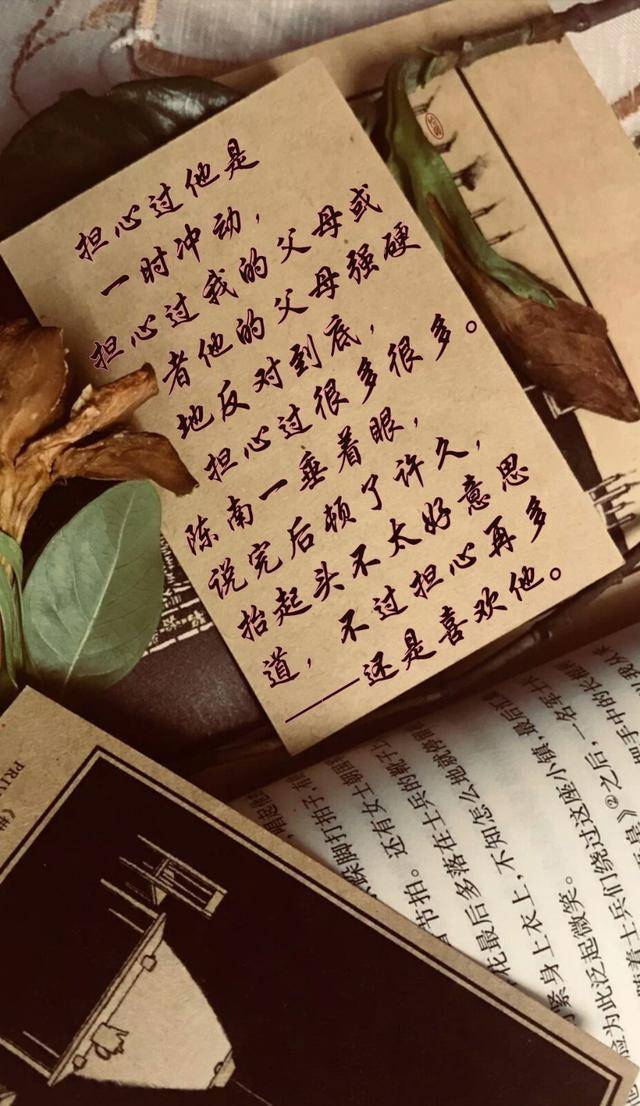 担心过他是
一时冲动，
担心过我的父母或
者他的父母强硬
地反对到底，
担心过很多很多。
陈南一垂着眼，
说完后顿了许久，
抬起头不太好意思
道，不过担心再多
——还是喜欢他。
PRIV
节拍。还有女士朝
花最后多落在士兵的靴子上
紧身上衣上，不知怎么地就
应为此泛起微笑。
随着士兵们绕过这座小镇，最后
之后，一名军士
手中的长